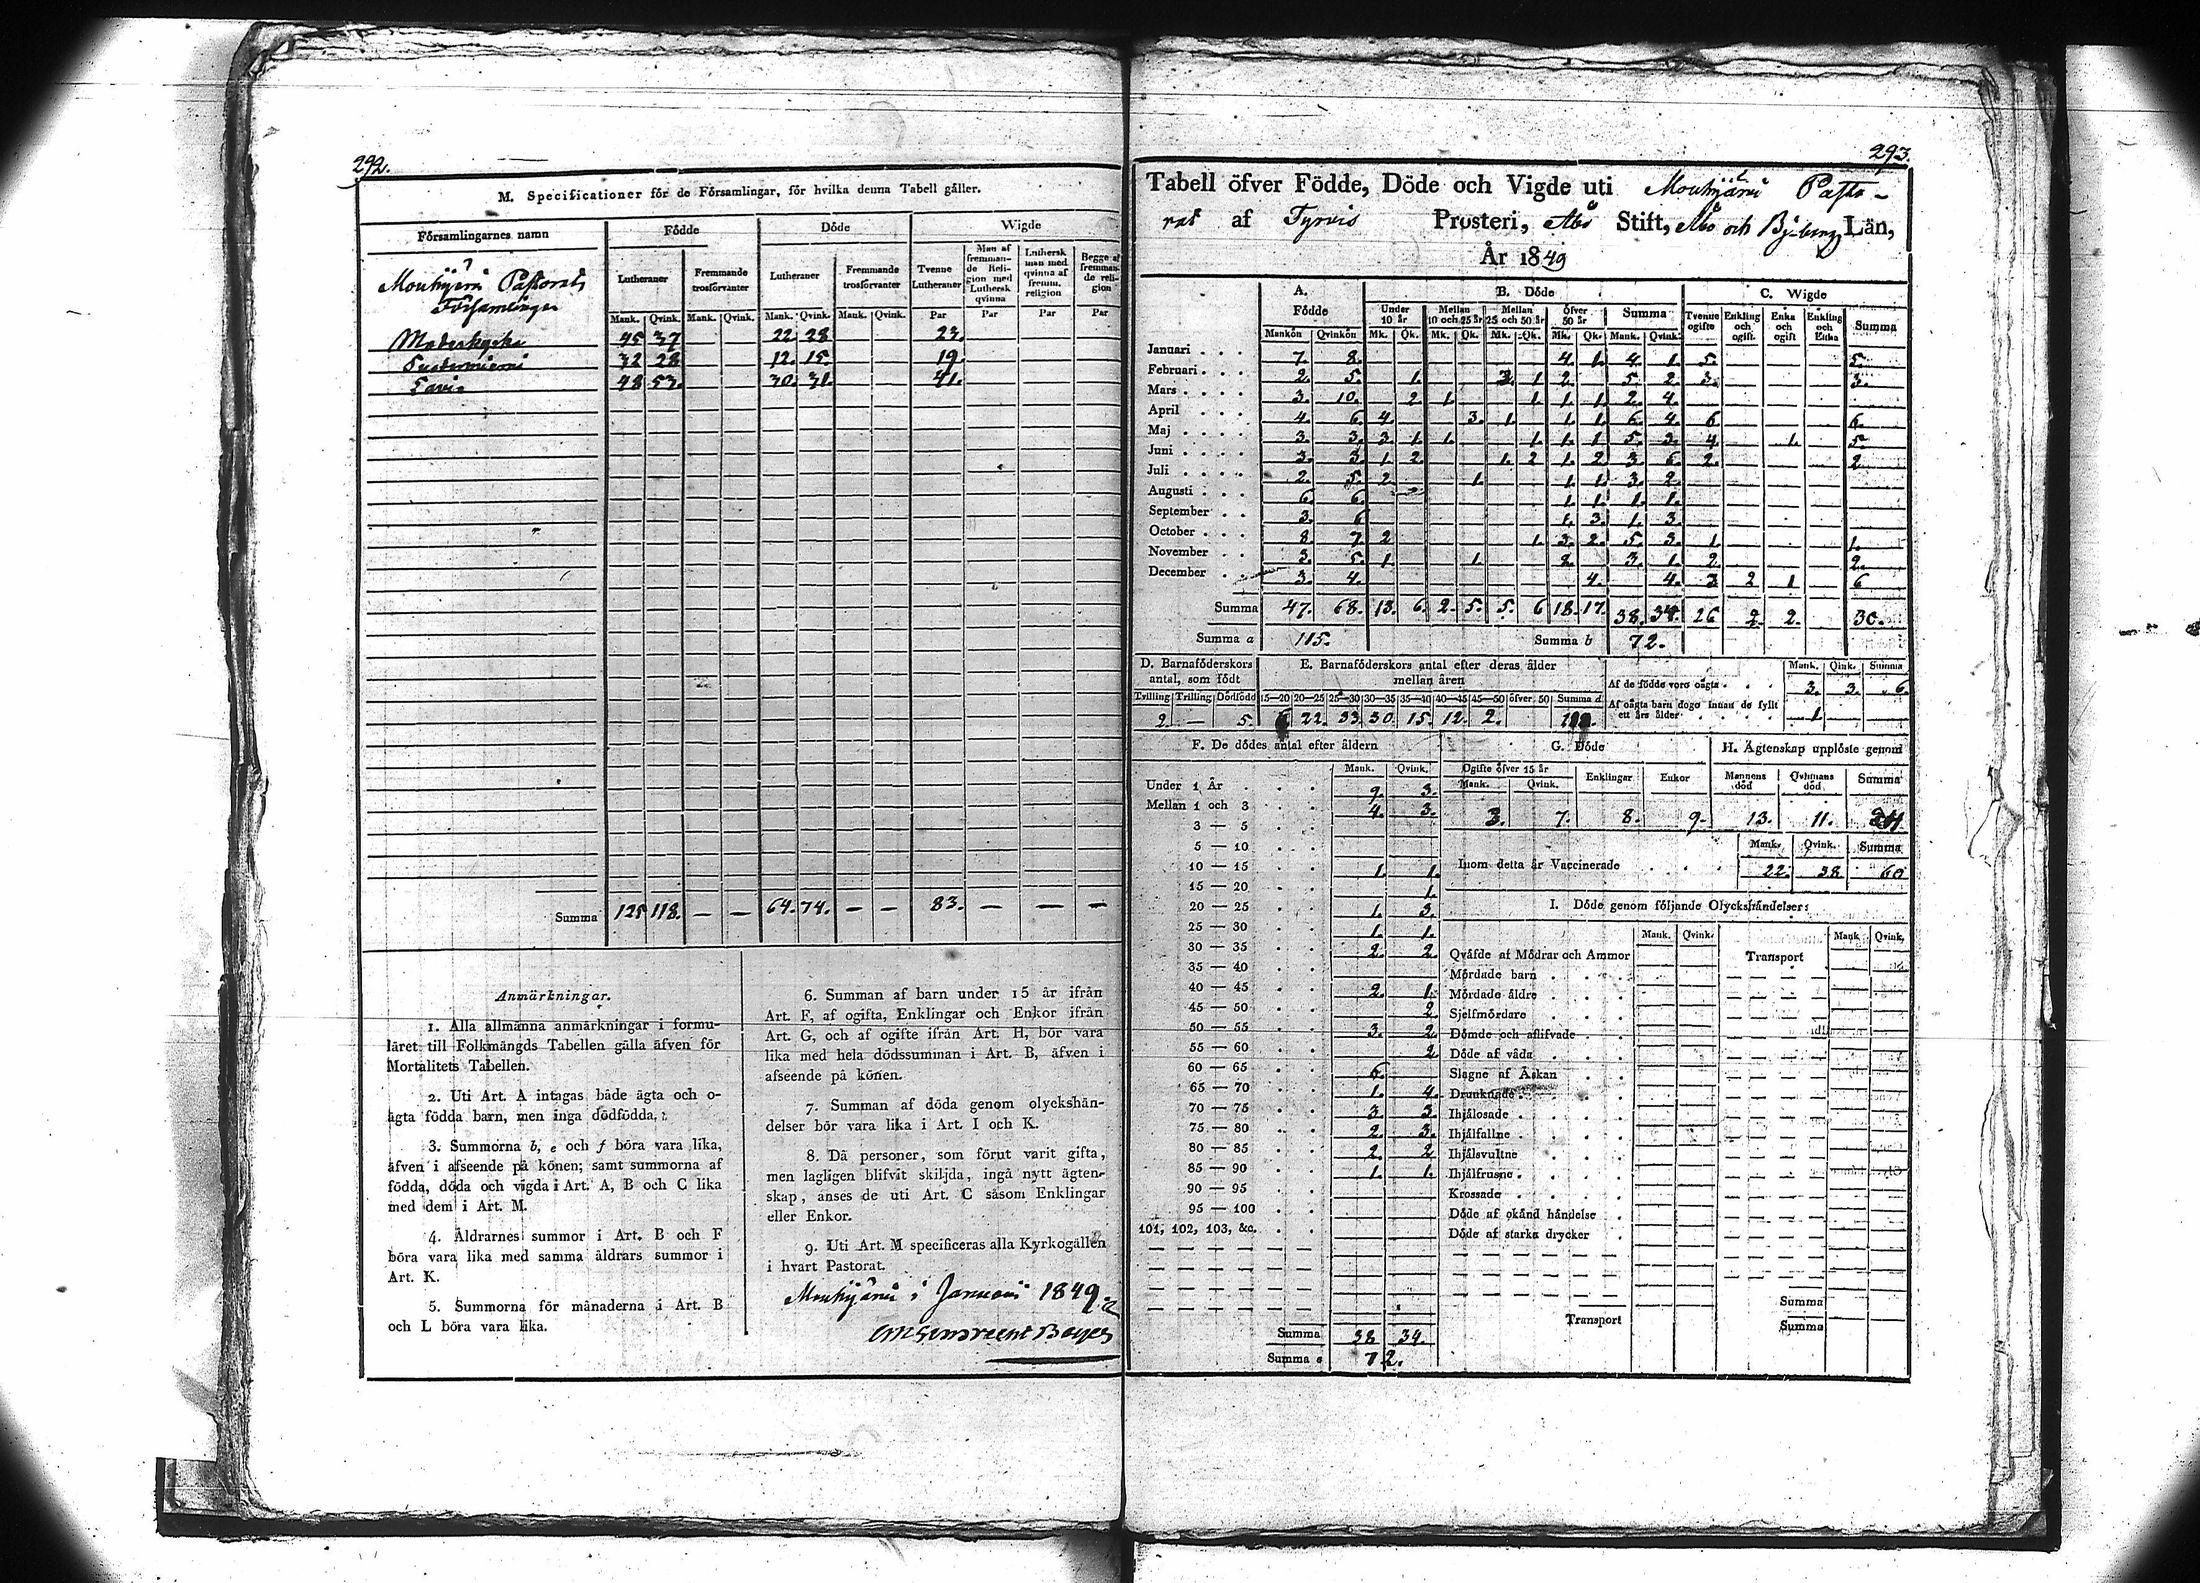 292.
M. Specificationer för de Församlingar, för hvilka denna Tabell gäller.
Församlingarnes namn Födde Döde Wigde
Lutheraner Fremmande trosförvanter Lutheraner Fremmande trosförvanter Tvenne Lutheraner Man af fremmande Religion med Luthersk qvinna Luthersk man med qvinna af fremm. religion Begge af fremmande religion
Mouhijärvi Pastorats
Församlingar
Mank. Qvink. Mank. Qvink. Mank. Qvink. Mank. Qvink. Par Par Par Par
Moderkyrka 45 37 22. 28 23.
Suoderniemi 32 28 12. 15. 19.
Lavia 48 53. 30. 31. 41.
Summa 125 118. — — 64. 74. — — 83. — — —
Anmärkningar.
1. Alla allmänna anmärkningar i formu-
läret till Folkmängds Tabellen gälla äfven för
Mortalitets Tabellen.
2. Uti Art. A intagas både ägta och o-
ägta födda barn, men inga dödfödda.
3. Summorna b, e och f böra vara lika,
äfven i afseende på könen; samt summorna af
födda, döda och vigda i Art. A, B och C lika
med dem i Art. M.
4. Åldrarnes summor i Art. B och F
böra vara lika med samma åldrars summor i
Art. K.
5. Summorna för månaderna i Art. B
och L böra vara lika.
6. Summan af barn under 15 år ifrån
Art. F, af ogifta, Enklingar och Enkor ifrån
Art. G, och af ogifte ifrån Art. H, bör vara
lika med hela dödssumman i Art. B, äfven i
afseende på könen.
7. Summan af döda genom olyckshän-
delser bör vara lika i Art. I och K.
8. Då personer, som förut varit gifta,
men lagligen blifvit skiljda, ingå nytt ägten-
skap, anses de uti Art. C såsom Enklingar
eller Enkor.
9. Uti Art. M specificeras alla Kyrkogällen
i hvart Pastorat.
Mouhijärvi i Januarii 1849.
293.
Tabell öfver Födde, Döde och Vigde uti Mouhijärvi Pasto-
rat af Tyrvis Prosteri, Åbo Stift, Åbo och Bj-borgs Län,
År 1849
A. Födde B. Döde C. Wigde
Under 10 år Mellan 10 och 25 år Mellan 25 och 50 år Öfver 50 år Summa Tvenne ogifte Enkling och ogift. Enka och ogift Enkling och Enka Summa
Mankön Qvinkön Mk. Qk. Mk. Qk. Mk. Qk. Mk. Qk. Mank. Qvink.
Januari . . . 7. 8. 4. 1. 4. 1. 5. 5.
Februari . . . 2. 5. 1. 3. 1. 2. 5. 2. 3. 3.
Mars . . . . 3. 10. 2 1. 1. 1. 1. 2. 4.
April . . . . 4. 6. 4. 3. 1. 1. 1. 6. 4. 6 6.
Maj . . . . 3. 3. 3. 1. 1. 1. 1. 1 5. 3. 4. 1. 5.
Juni . . . . 3. 3. 1. 2. 1. 2 1. 2 3. 6. 2. 2
Juli . . . . 2. 5. 2. 1. 1. 1. 3. 2.
Augusti . . . 6. 6. 1. 1. 1. 1.
September . . 3. 6 1. 3. 1. 3.
October . . . 8. 7. 2. 1. 3. 2. 5. 3. 1. 1.
November . . 3. 5. 1. 1. 2. 3. 1. 2. 2.
December . . 3. 4. 4. 4. 3 2 1 6
Summa 47. 68. 13. 6. 2. 5. 5. 6 18. 17. 38. 34. 26 2 2. 30.
Summa a 115. Summa b 72.
D. Barnaföderskors antal, som födt
E. Barnaföderskors antal efter deras ålder mellan åren
Mank. Qink. Summa
Tvilling Trilling Dödfödd 15—20 20—25 25—30 30—35 35—40 40—45 45—50 öfver 50 Summa d
2. — 5. 22. 33. 30. 15. 12. 2.
Af de födde voro oägta . . . 3. 3. 6.
Af oägta barn dogo innan de fyllt ett års ålder . . . 1.
F. De dödes antal efter åldern
Mank. Qvink.
Under 1 År . . . 9. 3.
Mellan 1 och 3 . . 4. 3.
3 — 5
5 — 10
10 — 15 1. 1.
15 — 20 1.
20 — 25 1. 3.
25 — 30 1. 1.
30 — 35 2. 2.
35 — 40
40 — 45 2. 1.
45 — 50 2
50 — 55 3. 2
55 — 60 2
60 — 65 6.
65 — 70 1. 4.
70 — 75 3. 3.
75 — 80 2. 3.
80 — 85 2. 2
85 — 90 1. 1.
90 — 95
95 — 100
101, 102, 103, &c.
Summa 38. 34.
Summa e 72.
G. Döde
Ogifte öfver 15 år Enklingar Enkor
Mank. Qvink.
3. 7. 8. 9.
H. Ägtenskap upplöste genom
Mannens död Qvinnans död Summa
13. 11. 24
Mank. Qvink. Summa
Inom detta år Vaccinerade . . . . 22. 38 60
I. Döde genom följande Olyckshändelser:
Mank. Qvink. Mank. Qvink.
Qväfde af Mödrar och Ammor Transport
Mördade barn . . .
Mördade äldre . . .
Sjelfmördare . . .
Dömde och aflifvade .
Döde af våda . . .
Slagne af Åskan . .
Drunknade . . . .
Ihjälosade . . . .
Ihjälfallne . . . .
Ihjälsvultne . . .
Ihjälfrusne . . . .
Krossade . . . .
Döde af okänd händelse .
Döde af starka drycker .
Transport
Summa
Summa